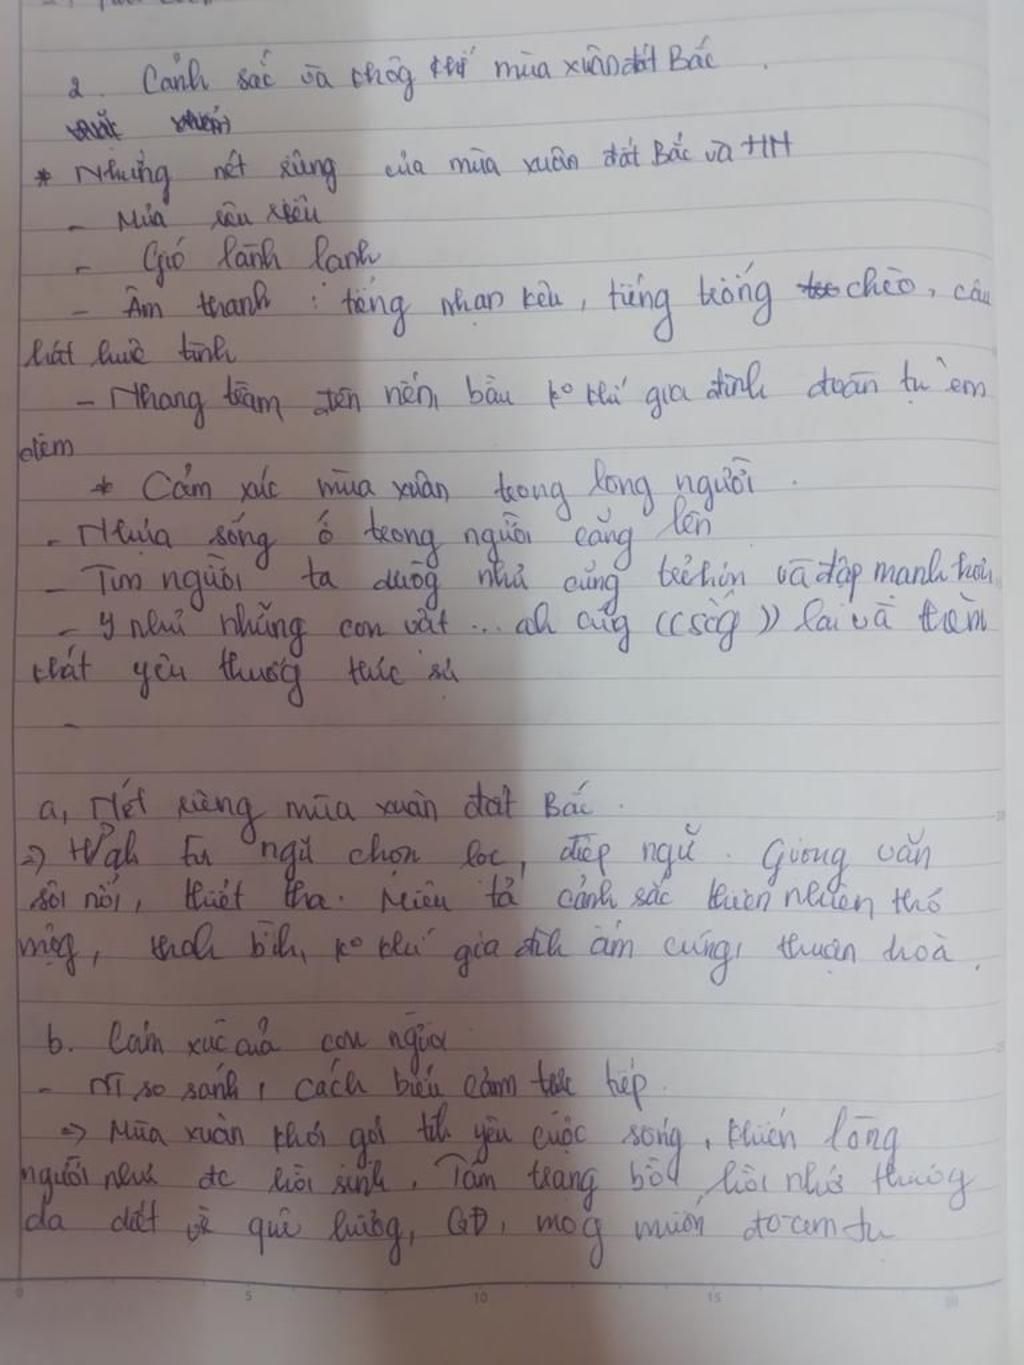 2. Cảnh sắc và khôg khí mùa xuân đất Bắc.
* Những nét riêng của mùa xuân đất Bắc và HN
- Mưa riêu riêu
- Gió lành lạnh
- Âm thanh : tiếng nhạn kêu, tiếng trống chèo, câu
hát huê tình
- Nhang trầm đèn nến, bầu ko khí gia đình đoàn tụ êm
đềm
* Cảm xúc mùa xuân trong lòng người.
- Nhựa sống ở trong người căng lên
- Tim người ta dườg như cũng trẻ hơn và đập mạnh hơn
- Y như những con vật ... ah cũg ((sốg)) lại và thèm
khát yêu thươg thực sự
-
a, Nét riêng mùa xuân đất Bắc.
=> từ ngữ chọn lọc, điệp ngữ. Giọng văn
sôi nổi, thiết tha. Miêu tả cảnh sắc thiên nhiên thơ
mộg, thah bìh, ko khí gia đìh ấm cúng, thuận hoà.
b. Cảm xúc của con người
- NT so sánh, cách biểu cảm trực tiếp.
=> Mùa xuân khơi gợi tìh yêu cuộc sống, khiến lòng
người như đc hồi sinh. Tâm trạng bồi hồi nhớ thươg
da diết về quê hươg, GĐ, mog muốn